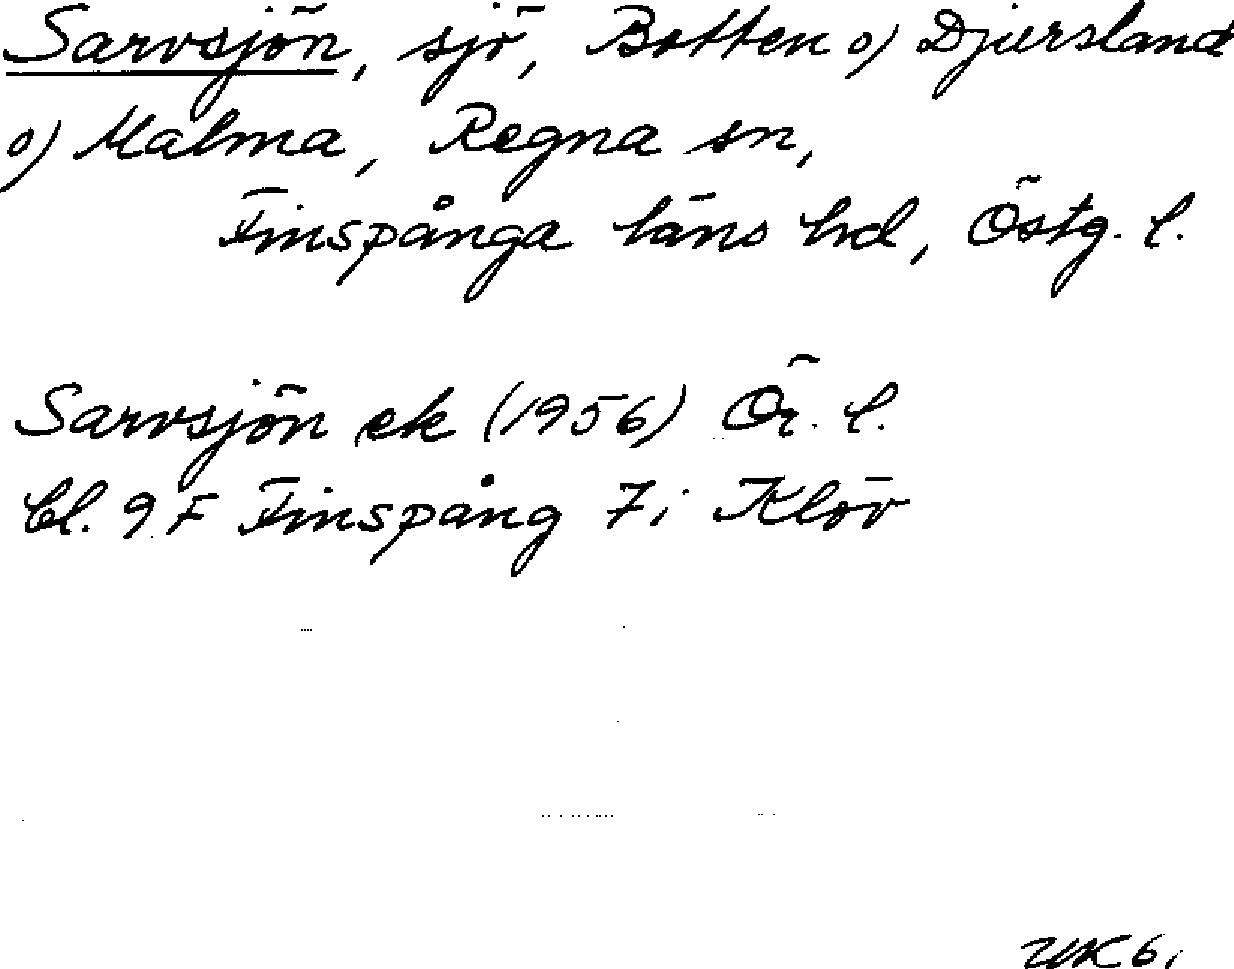 Sarvsjön, sjö, Botten o) Djursland
o) Malma, Regna sn,
Finspånga läns hd, Östg. l.
Sarvsjön ek (1956) Ör. l.
bl. 9 F Finspång 7 i Klöv
UK 6.